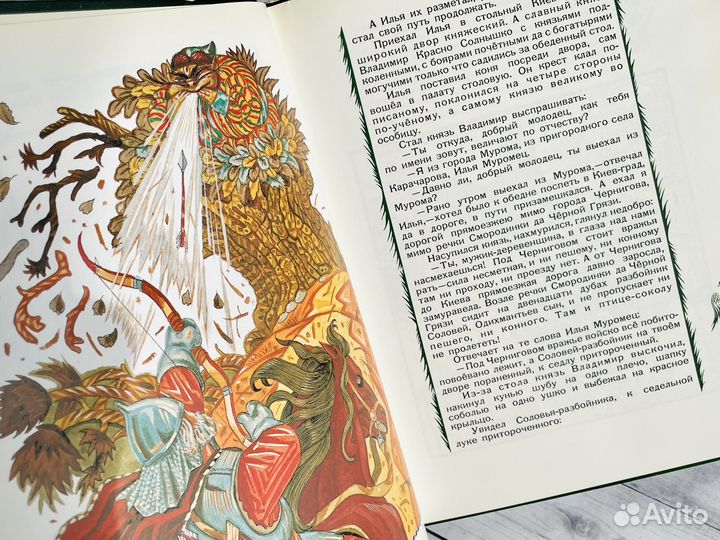 А Илья их разметал,
стал свой путь продолжать.
Приехал Илья в стольный Киев
широкий двор княжеский. А славный княз
Владимир Красно Солнышко с князьями под-
коленными, с боярами почётными да с богатырями
могучими только что садились за обеденный стол.
Илья поставил коня посреди двора, сам
вошёл в палату столовую. Он крест клал по-
писаному, поклонился на четыре стороны
по-учёному, а самому князю великому во
особицу.
Стал князь Владимир выспрашивать:
—Ты откуда, добрый молодец, как тебя
по имени зовут, величают по отчеству?
—Я из города Мурома, из пригородного села
Карачарова, Илья Муромец.
—Давно ли, добрый молодец, ты выехал из
Мурома?
—Рано утром выехал из Мурома,—отвечал
Илья,—хотел было к обедне поспеть в Киев-град,
да в дороге, в пути призамешкался. А ехал я
дорогой прямоезжею мимо города Чернигова,
мимо речки Смородинки да Чёрной Грязи.
Насупился князь, нахмурился, глянул недобро:
—Ты, мужик-деревенщина, в глаза над нами
насмехаешься! Под Черниговом стоит вражья
рать—сила несметная, и ни пешему, ни конному
там ни проходу, ни проезду нет. А от Чернигова
до Киева прямоезжая дорога давно заросла,
замуравела. Возле речки Смородинки да Чёрной
Грязи сидит на двенадцати дубах разбойник
Соловей, Одихмантьев сын, и не пропускает ни
пешего, ни конного. Там и птице-соколу
не пролететь!
Отвечает на те слова Илья Муромец:
—Под Черниговом вражье войско всё побито-
повоёвано лежит, а Соловей-разбойник на твоём
дворе пораненный, к седлу притороченный.
Из-за стола князь Владимир выскочил,
накинул кунью шубу на одно плечо, шапку
соболью на одно ушко и выбежал на красное
крыльцо.
Увидел Соловья-разбойника, к седельной
луке притороченного:
Avito